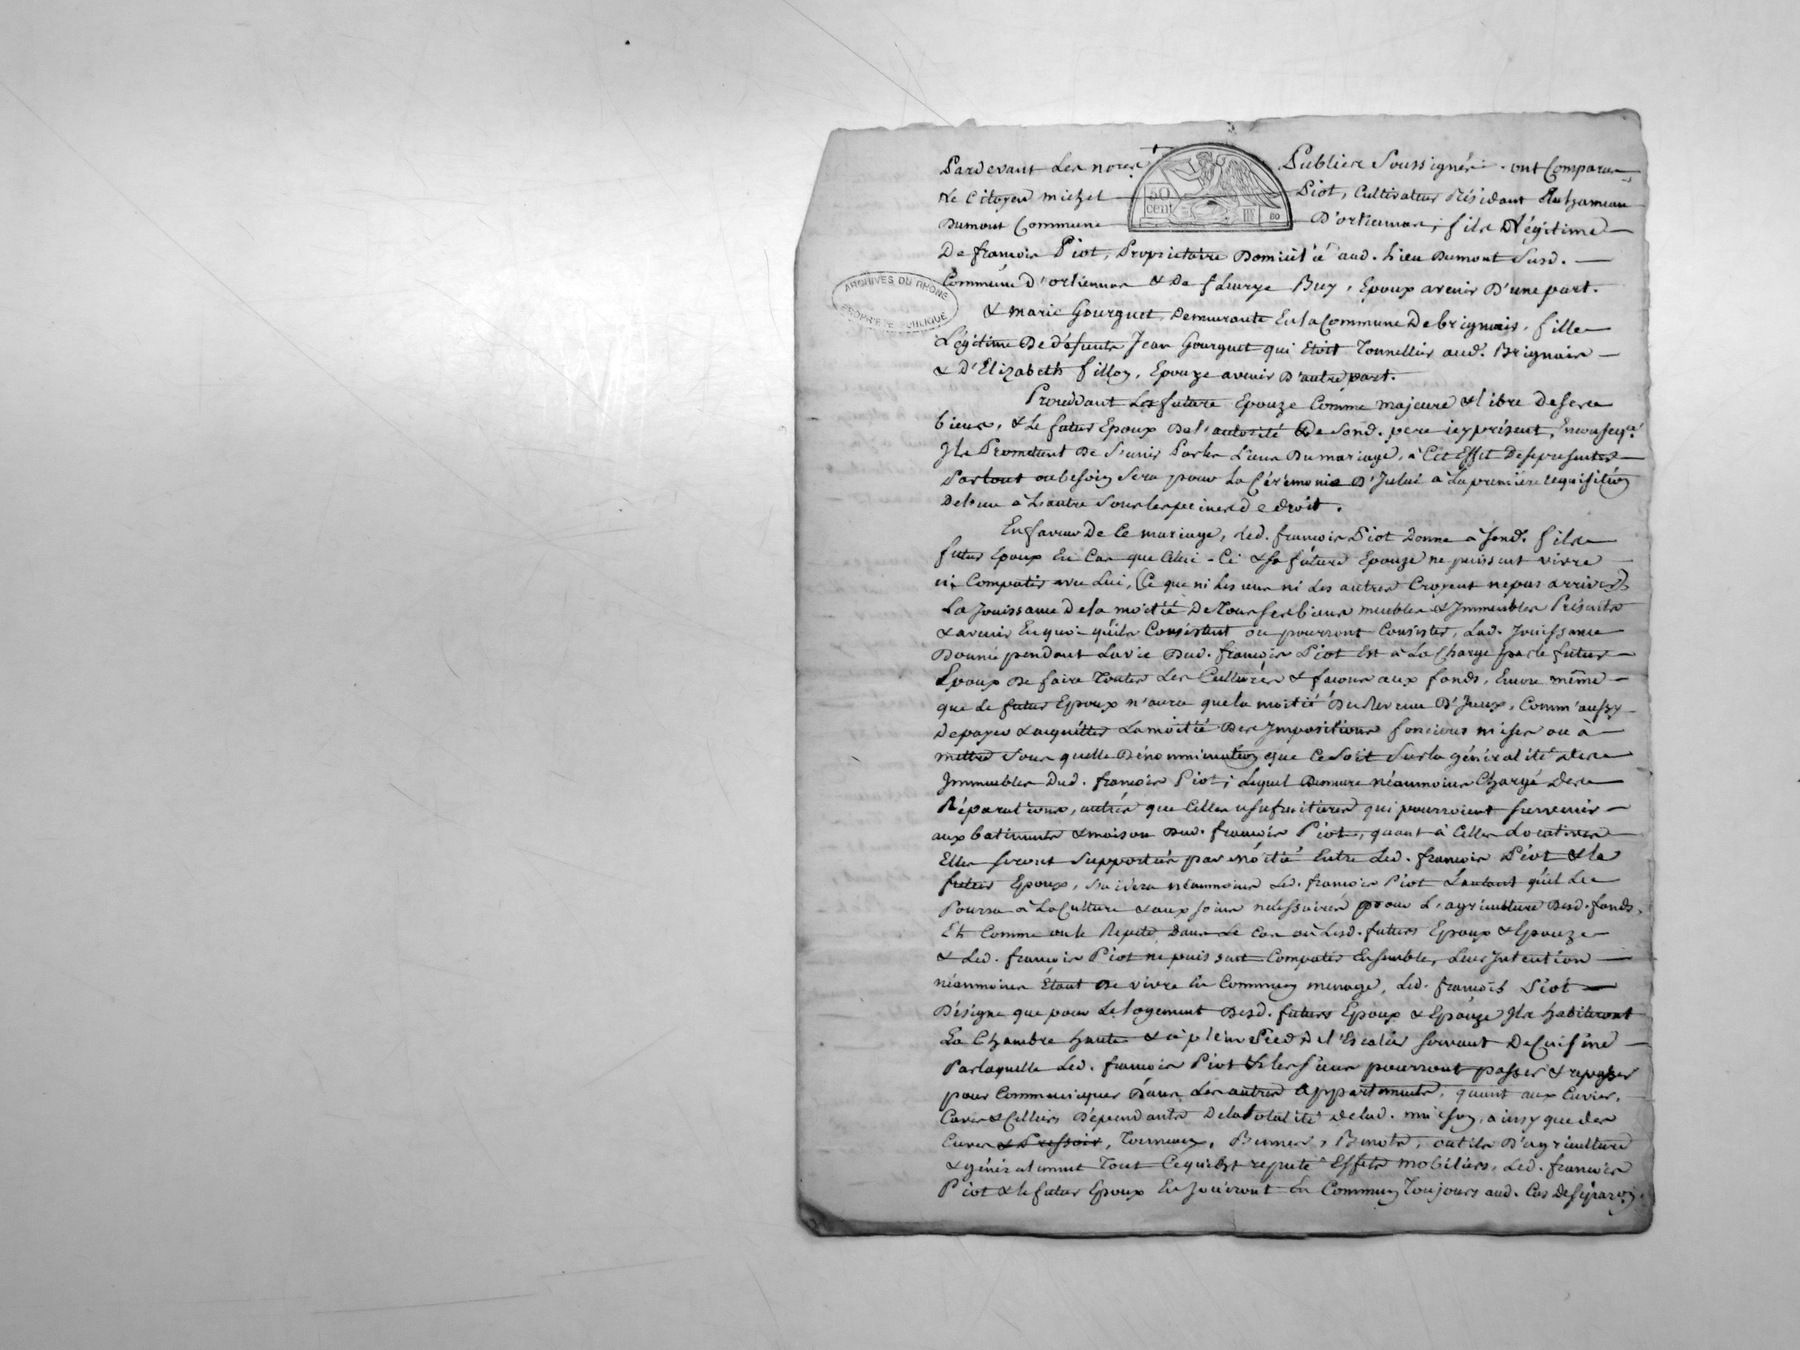 Pardevant Les nores Publics Soussignés ont Comparus
Le Citoyen michel Piot, Cultivateur Résidant Auhameau
Dumont Commune D'orlienas, fils Légitime
De françois Piot, Propriétaire Domicilié aud. Lieu Dumont Susd.
Commune d'orlienas & De fleurye Buy, Epoux avenir D'une part.
& marie Gourguet, Demeurante En la Commune De brignais, fille
Légitime De défunts Jean Gourguet qui Etoit Tonnellier aud. Brignais
& D'Elizabeth filloy, Epouze avenir D'autre part.
Procédant La future Epouze Comme majeure & libre De ses
biens, & Le futur Epoux De l'autorité De Sond. pere icy présent, En conseqce
Ils Promettent De S'unir Par les Liens Du mariage, à Cet Effet De se présenter
Partout ou besoin Sera pour La Cérémonie D'Icelui à La première requisition
De L'un à L'autre Sous les peines de droit.
En faveur De Ce mariage, Led. françois Piot Donne à Sond. fils
futur Epoux En Cas que Celui-Ci & Sa future Epouze ne puissent vivre
ni Compatir avec Lui, (Ce que ni Les uns ni Les autres Croyent ne pas arriver)
La Jouissance De la moitié De Tous Ses biens meubles & Immeubles Présents
& avenir En quoi qu'ils Consistent ou pourront Consister, Lad. Jouissance
Donnée pendant La vie Dud. françois Piot Est à La Charge par le futur
Epoux De faire Toutes Les Cultures & façons aux fonds, Encore même
que Le futur Epoux n'aura que la moitié Du Revenu D'Iceux, Comm'aussy
De payer & acquitter La moitié Des Impositions foncieres mises ou à
mettre Sous quelle Dénomination que Ce Soit Sur la généralité des
Immeubles Dud. françois Piot; Lequel Demeure néanmoins Chargé des
Réparations, autres que Celles usufruitieres qui pourroient Survenir
aux batiments & maison Dud. françois Piot, quant à Celles Locatives
Elles Seront Supportées par moitié Entre Led. françois Piot & le
futur Epoux, néanmoins Led. françois Piot autant qu'il Le
Pourra à La Culture & aux soins nécéssaires pour L'agriculture Desd. fonds,
Et Comme on le Répète, Dans Le Cas où Lesd. futurs Epoux & Epouze
& Led. françois Piot ne puissent Compatir Ensemble, Leur Intention
néanmoins Étant De vivre En Commun menage, Led. françois Piot
Désigne que pour Le logement Desd. futurs Epoux & Epouze Ils habiteront
La Chambre haute & à plein Pied De l'Escalier Servant De Cuisine
Par laquelle Led. françois Piot & Les Siens pourront passer & repasser
pour Communiquer Dans Les autres appartements, quant aux Cuvier,
Caves & Celliers Dépendants De la totalité De lad. maison, ainsy que des
Cuves & Pressoir, Tonneaux, Bennes, Benots, outils D'agriculture
& généralement Tout Ce qui Est réputé Effets mobiliers, Led. françois
Piot & le futur Epoux En Jouiront En Commun Toujours aud. Cas De séparon.
50
cent
80
ARCHIVES DU RHÔNE
PROPRIÉTÉ PUBLIQUE